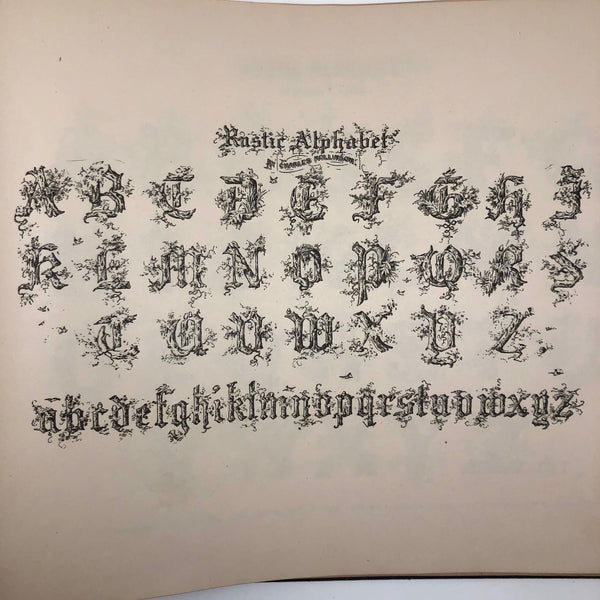 Rustic Alphabet
By CHARLES ROLLINSON.
A B C D E F G H I
K L M N O P Q R S
T U V W X Y Z
a b c d e f g h i k l m n o p q r s t u v w x y z